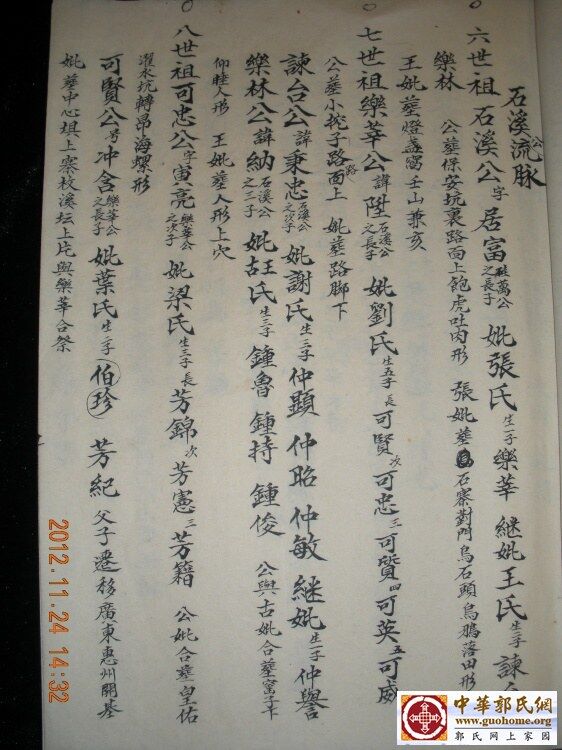 石溪公流脉
六世祖石溪公字居富 之長子 妣張氏生一子樂莘 継妣王氏生二子諫台
樂林 公墓保安坑裏路面上飽虎吐肉形 張妣墓石寨對門烏石頭烏鴉落田形
王妣墓燈盞窩壬山兼亥
七世祖樂莘公諱陞石溪公之長子 妣劉氏生五子長可賢次可忠三可賢四可英五可威
公墓小 子路面上 妣墓路脚下
諫台公諱秉忠石溪公之次子 妣謝氏生三子仲顕 仲昭 仲敏 継妣生一子仲譽
樂林公諱納石溪公之三子 妣王氏 古氏生三子鍾魯 鍾持 鍾俊 公與古妣合墓窩子
仰睦人形 王妣墓人形上穴
八世祖可忠公字寅亮樂莘公之次子 妣梁氏生三子長芳錦次芳憲三芳籍 公妣合墓皇佑
濯水坑轉昂海螺形
可賢公号冲含樂莘公之長子 妣葉氏生二子伯珍 芳紀 父子遷移廣東惠州開基
妣墓中心垻上寨枝溪坛上片與樂莘合祭
2012.11.24 14:32
中華郭氏網
www.guohome.org
郭氏网上家园